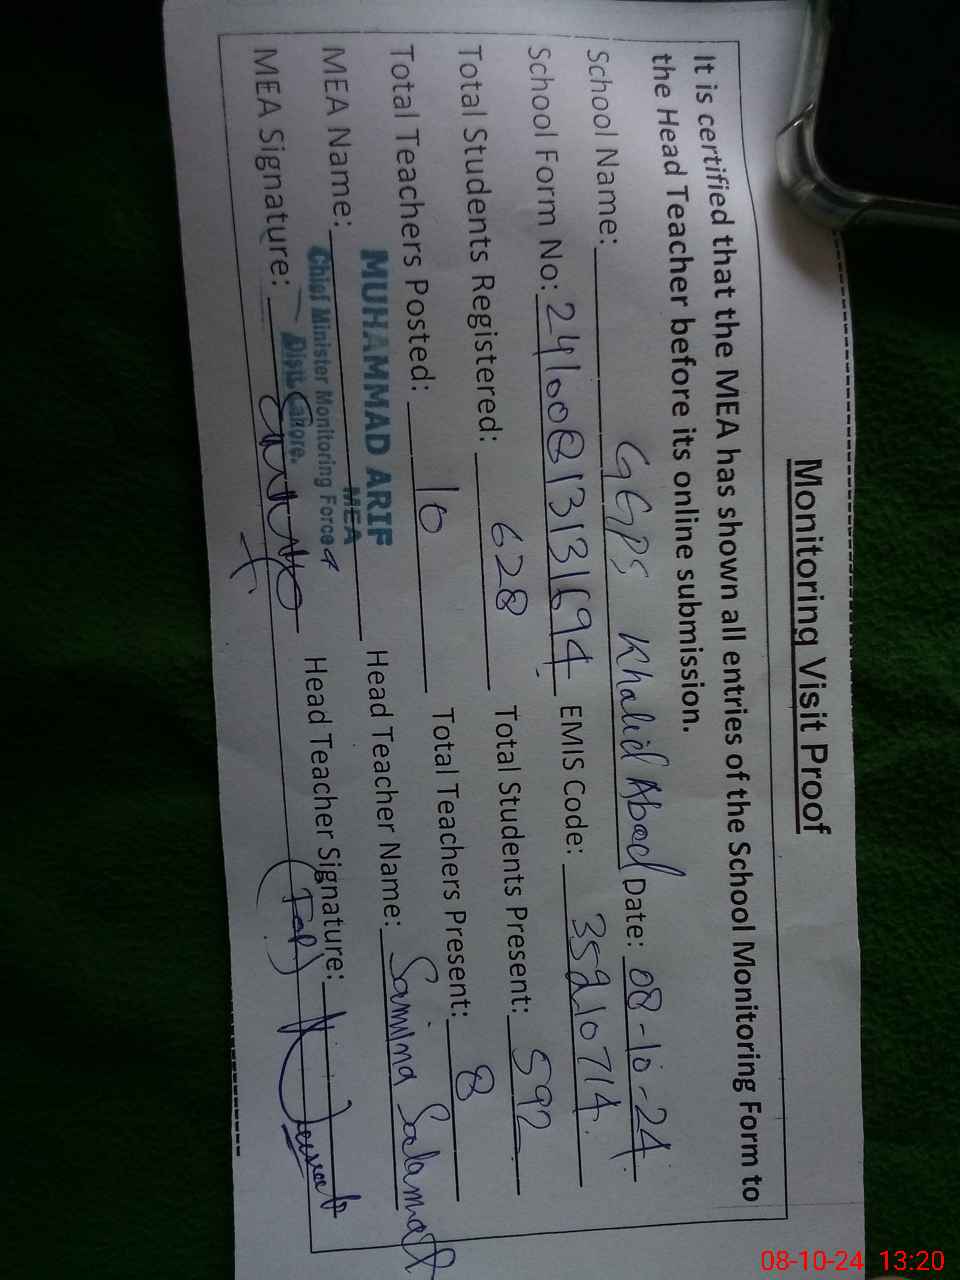 Monitoring Visit Proof
It is certified that the MEA has shown all entries of the School Monitoring Form to
the Head Teacher before its online submission.
School Name: GGPS Khalid Abad Date: 08-10-24.
School Form No: EMIS Code: 35210714.
Total Students Registered: 628 Total Students Present: 592
Total Teachers Posted: 10 Total Teachers Present: 8
MEA Name: MUHAMMAD ARIF Head Teacher Name: Samina Salamat
MEA
Chief Minister Monitoring Force
Distt: Lahore.
MEA Signature: Head Teacher Signature:
08-10-24 13:20